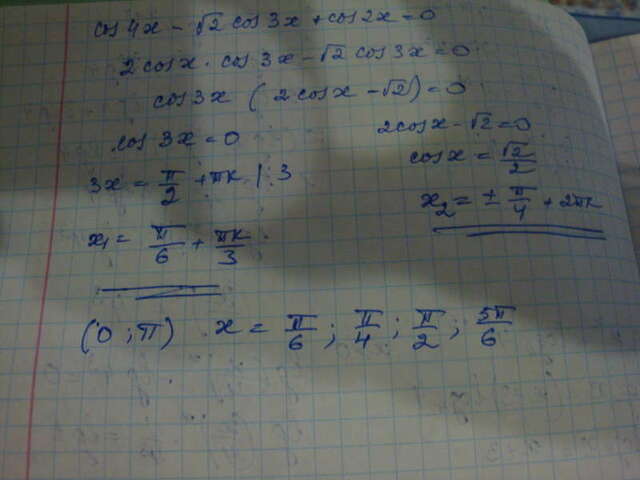 cos 4x - √2 cos 3x + cos 2x = 0
2 cos x · cos 3x - √2 cos 3x = 0
cos 3x (2 cos x - √2) = 0
cos 3x = 0
3x = π/2 + πk | 3
x₁ = π/6 + πk/3
2 cos x - √2 = 0
cos x = √2/2
x₂ = ± π/4 + 2πk
(0 ; π) x = π/6 ; π/4 ; π/2 ; 5π/6